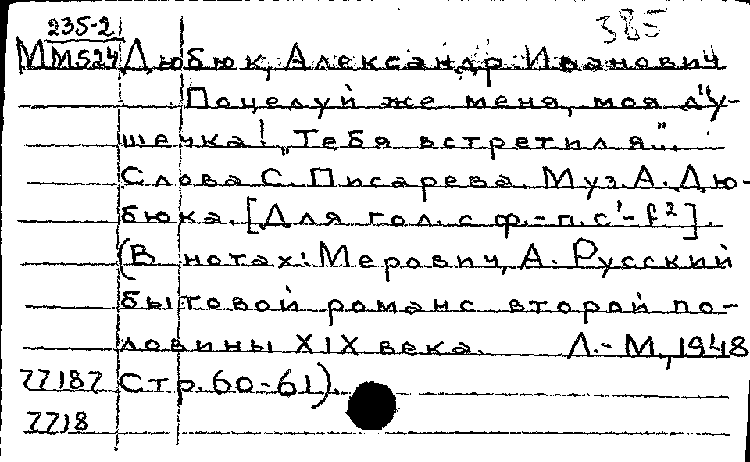 235-2
385
М М524 Дюбюк, Александр Иванович
Поцелуй же меня, моя ду-
шечка! „Тебя встретил я..."
Слова С. Писарева. Муз. А. Дю-
бюка. [Для гол. с ф.-п. c¹-f²].
(В нотах: Мерович, А. Русский
бытовой романс второй по-
ловины XIX века. Л.-М., 1948
77187 Стр. 60-61).
7718